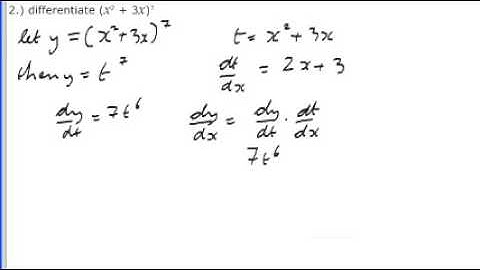 2.) differentiate (x² + 3x)⁷
let y = (x²+3x)⁷
t = x²+3x
then y = t⁷
dt/dx = 2x+3
dy/dt = 7t⁶
dy/dx = dy/dt · dt/dx
7t⁶